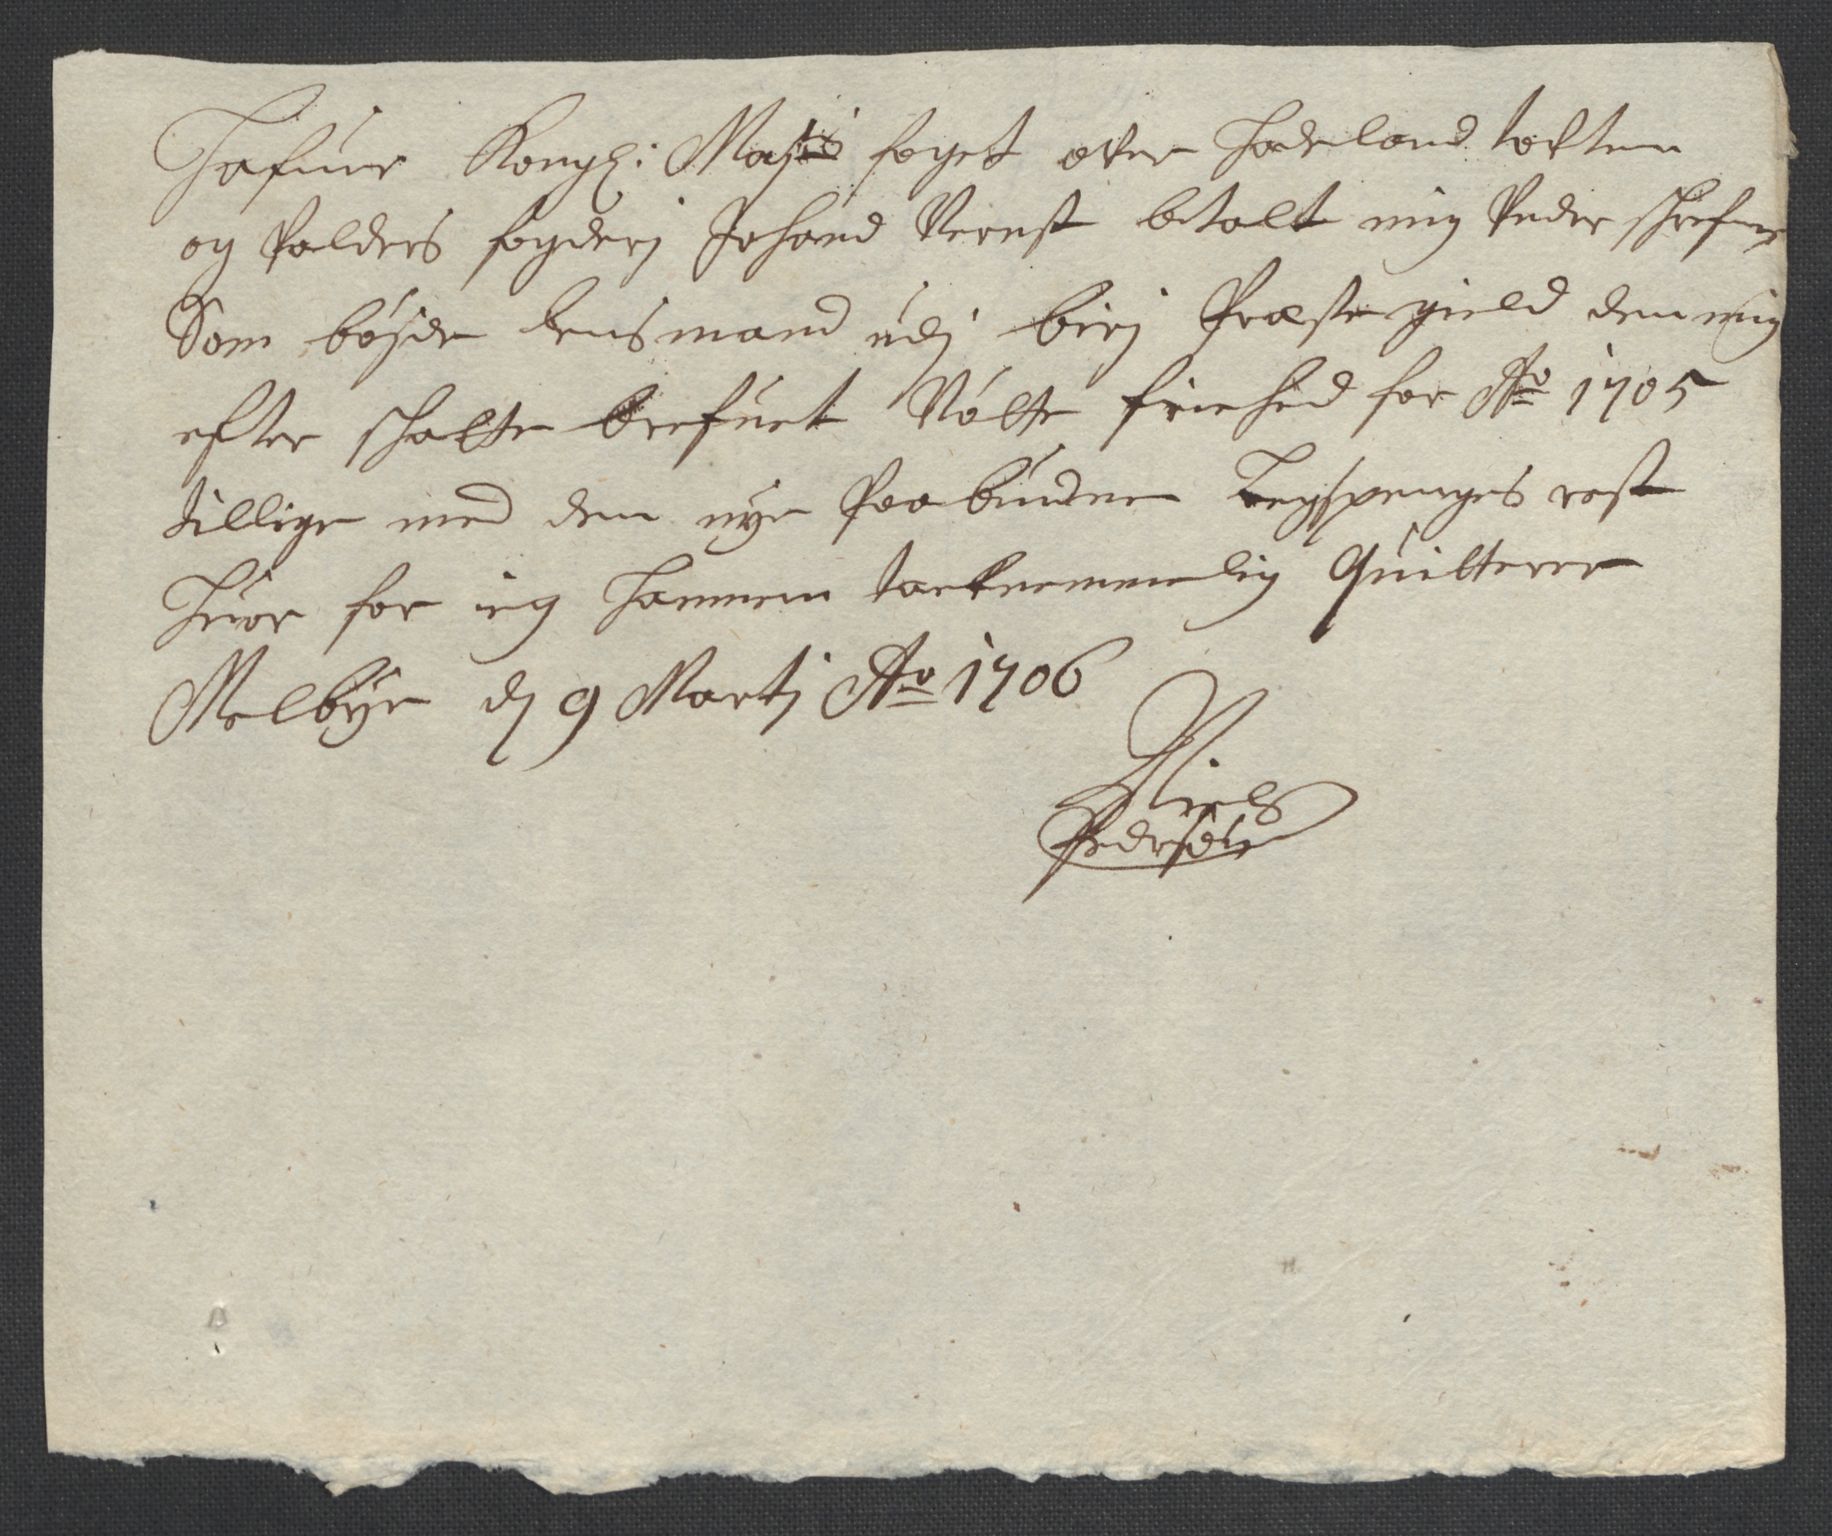 Hafuer Kongl: Mayts foget ofuer Hadeland toften
og Valders fogderj Johand Vernst betalt mig Under schrefne
Som bøyde Lensmand udj birj Præstegield den mig
efter schatte brefuet Nölte friehed for Ao 1705
tillige med den nye Paabudne Legspenges rest
Huor for ieg hannem tacknemmelig Quitterer
Melbye dj 9 Martj Ao 1706
Niels
Pedersøn